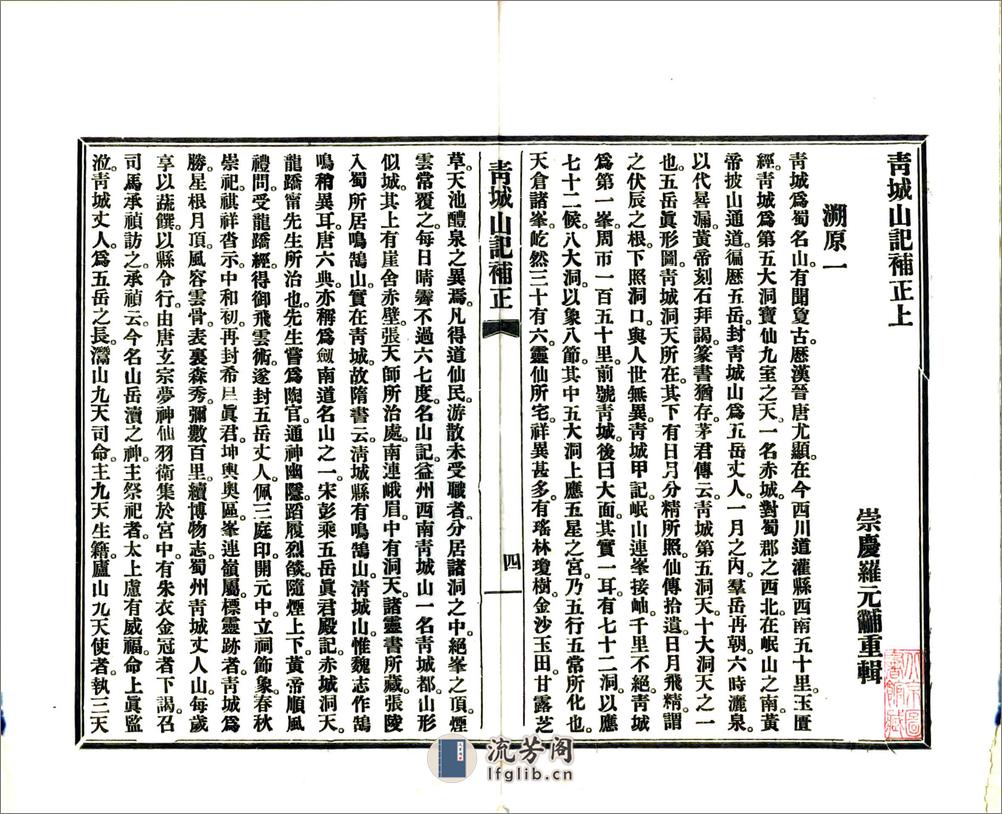 靑城山記補正上
崇慶羅元黼重輯
溯原一
靑城爲蜀名山。有聞夐古。歷漢晉唐尤顯。在今西川道灌縣西南五十里。玉匱
經。靑城爲第五大洞寶仙九室之天。一名赤城。對蜀郡之西北。在岷山之南。黃
帝披山通道。徧歷五岳。封靑城山爲五岳丈人。一月之內。羣岳再朝。六時灑泉。
以代晷漏。黃帝刻石拜謁。篆書猶存。茅君傳云。靑城第五洞天。十大洞天之一
也。五岳眞形圖。靑城洞天所在。其下有日月分精所照。仙傳拾遺。日月飛精。謂
之伏辰之根。下照洞口。與人世無異。靑城甲記。岷山連峯接岫。千里不絕。靑城
爲第一峯。周帀一百五十里。前號靑城。後曰大面。其實一耳。有七十二洞。以應
七十二候。八大洞。以象八節。其中五大洞。上應五星之宮。乃五行五常所化也。
天倉諸峯。屹然三十有六。靈仙所宅。祥異甚多。有瑤林瓊樹。金沙玉田。甘露芝
靑城山記補正
四
草。天池醴泉之異焉。凡得道仙民。游散未受職者。分居諸洞之中。絕峯之頂。煙
雲常覆之。每日晴霽。不過六七度。名山記。益州西南靑城山。一名靑城都。山形
似城。其上有崖舍赤壁。張天師所治處。南連峨眉。中有洞天。諸靈書所藏。張陵
入蜀所居鳴鵠山。實在靑城。故隋書云。淸城縣有鳴鵠山。淸城山。惟魏志作鵠
鳴。稍異耳。唐六典亦稱爲劒南道名山之一。宋彭乘五岳眞君殿記。赤城洞天。
龍蹻甯先生所治也。先生嘗爲陶官。通神幽隱。蹈履烈燄。隨煙上下。黃帝順風
禮問。受龍蹻經。得御飛雲術。遂封五岳丈人。佩三庭印。開元中。立祠飾象。春秋
崇祀。祺祥沓示。中和初。再封希夷眞君。坤輿奧區。峯連嶺屬。標靈跡者。靑城爲
勝。星根月頂。風容雲骨。表裏森秀。彌數百里。續博物志。蜀州靑城丈人山。每歲
享以蔬饌。以縣令行。由唐玄宗夢神仙羽衛。集於宮中。有朱衣金冠者下謁。召
司馬承禎訪之。承禎云。今名山岳瀆之神。主祭祀者。太上慮有威福。命上眞監
涖。靑城丈人爲五岳之長。灊山九天司命。主九天生籍。廬山九天使者。執三天
流芳阁
lfglib.cn